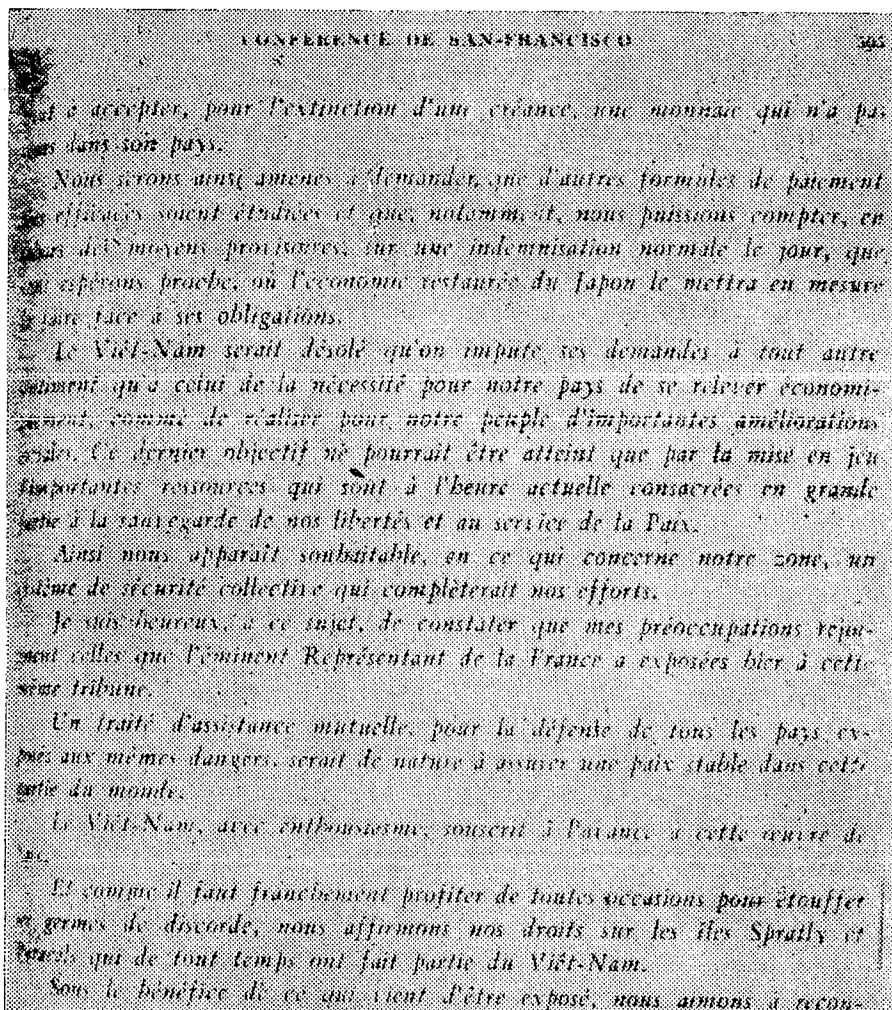 CONFERENCE DE SAN-FRANCISCO 505
à accepter, pour l'extinction d'une créance, une monnaie qui n'a pas
dans son pays.
Nous serons ainsi amenés à demander que d'autres formules de paiement
efficaces soient étudiées et que, notamment, nous puissions compter, en
de moyens provisoires, sur une indemnisation normale le jour, que
espérons proche, où l'économie restaurée du Japon le mettra en mesure
faire face à ses obligations.
Le Viêt-Nam serait désolé qu'on impute ses demandes à tout autre
qu'à celui de la nécessité pour notre pays de se relever économi-
comme de réaliser pour notre peuple d'importantes améliorations
Ce dernier objectif ne pourrait être atteint que par la mise en jeu
d'importantes ressources qui sont à l'heure actuelle consacrées en grande
à la sauvegarde de nos libertés et au service de la Paix.
Ainsi nous apparaît souhaitable, en ce qui concerne notre zone, un
de sécurité collective qui complèterait nos efforts.
Je suis heureux, à ce sujet, de constater que mes préoccupations rejoi-
gnent celles que l'éminent Représentant de la France a exposées hier à cette
même tribune.
Un traité d'assistance mutuelle, pour la défense de tous les pays ex-
posés aux mêmes dangers, serait de nature à assurer une paix stable dans cette
partie du monde.
Le Viêt-Nam, avec enthousiasme, souscrit à l'avance à cette œuvre de
Et comme il faut franchement profiter de toutes occasions pour étouffer
germes de discorde, nous affirmons nos droits sur les îles Spratly et
Paracels qui de tout temps ont fait partie du Viêt-Nam.
Sous le bénéfice de ce qui vient d'être exposé, nous aimons à recon-